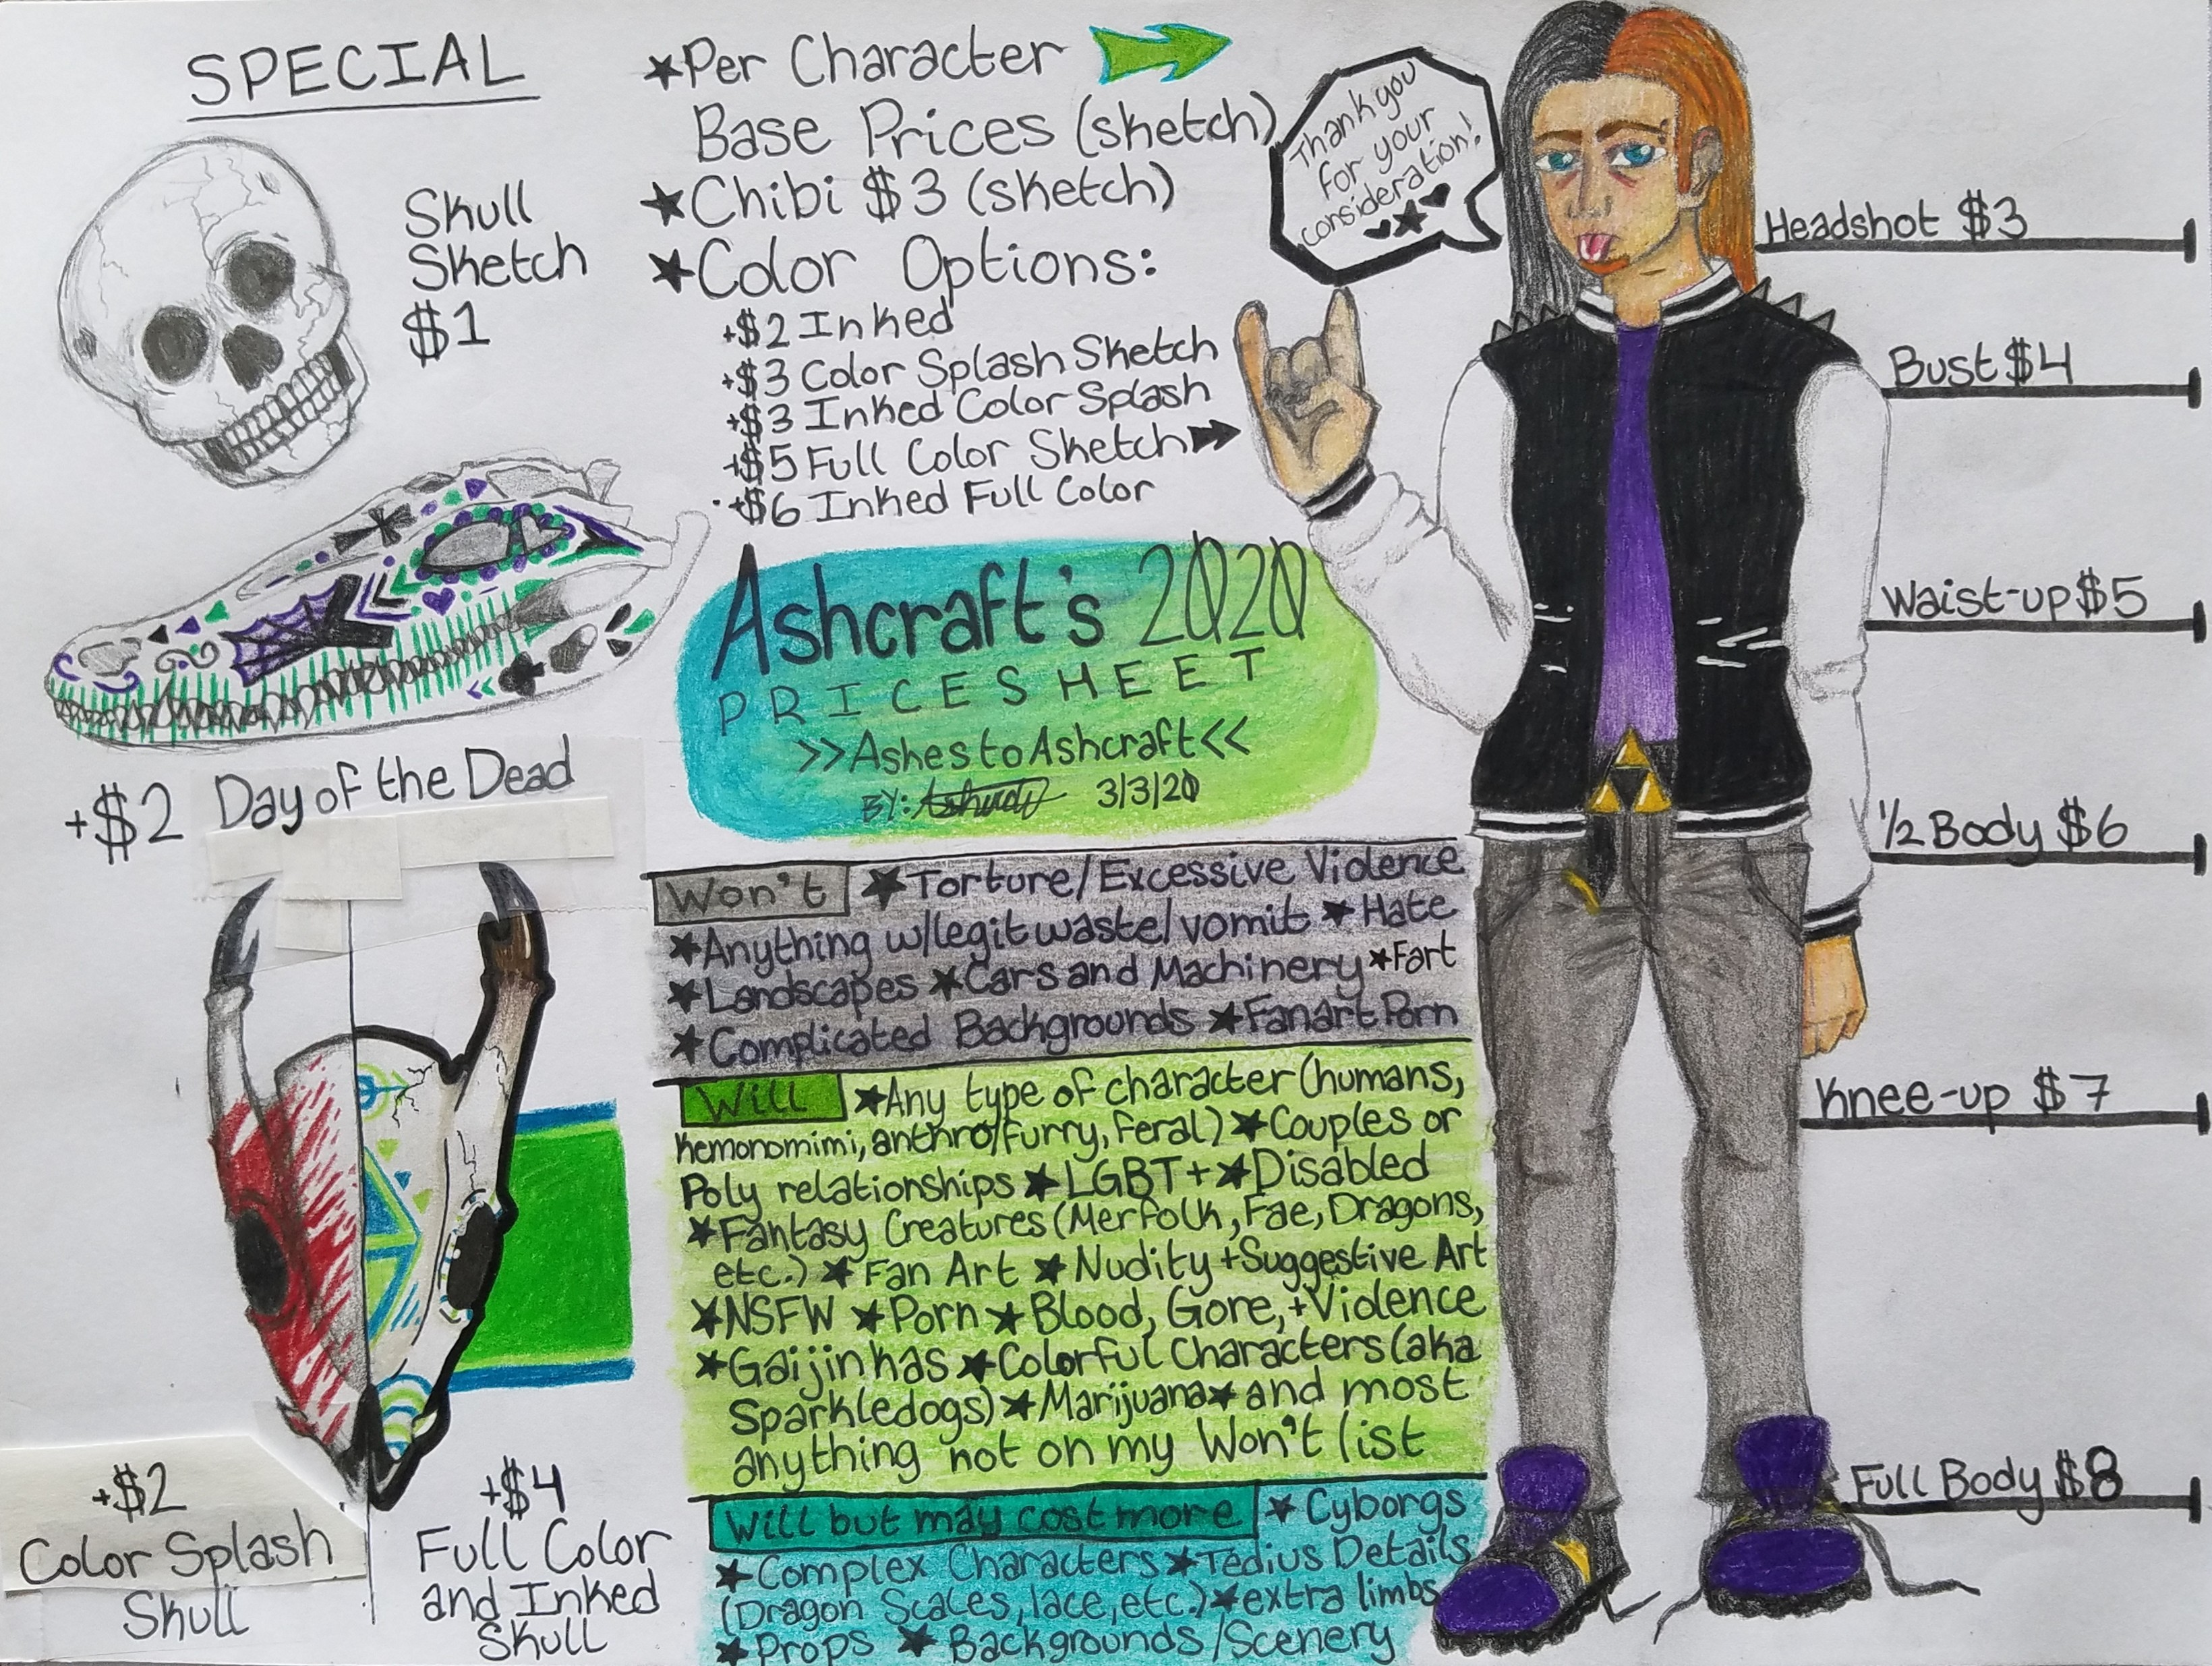 SPECIAL
Skull
Sketch
$1
+$2 Day of the Dead
+$2
Color Splash
Skull
+$4
Full Color
and Inked
Skull
★Per Character
Base Prices (sketch)
★Chibi $3 (sketch)
★Color Options:
+$2 Inked
+$3 Color Splash Sketch
+$3 Inked Color Splash
+$5 Full Color Sketch
+$6 Inked Full Color
Thank you
for your
consideration!
Ashcraft's 2020
PRICESHEET
>>AshestoAshcraft<<
BY: 3/3/20
Won't ★Torture/Excessive Violence
★Anything w/legit waste/vomit ★Hate
★Landscapes ★Cars and Machinery ★Fart
★Complicated Backgrounds ★Fanart Porn
Will ★Any type of character (humans,
Kemonomimi, anthro/furry, feral) ★Couples or
Poly relationships ★LGBT+ ★Disabled
★Fantasy Creatures (Merfolk, Fae, Dragons,
etc.) ★Fan Art ★Nudity +Suggestive Art
★NSFW ★Porn ★Blood, Gore, +Violence
★Gaijinkas ★Colorful Characters (aka
Sparkledogs) ★Marijuana ★and most
anything not on my Won't list
Will but may cost more ★Cyborgs
★Complex Characters ★Tedius Details
(Dragon Scales, lace, etc.) ★extra limbs
★Props ★Backgrounds/Scenery
Headshot $3
Bust $4
Waist-up $5
1/2 Body $6
Knee-up $7
Full Body $8